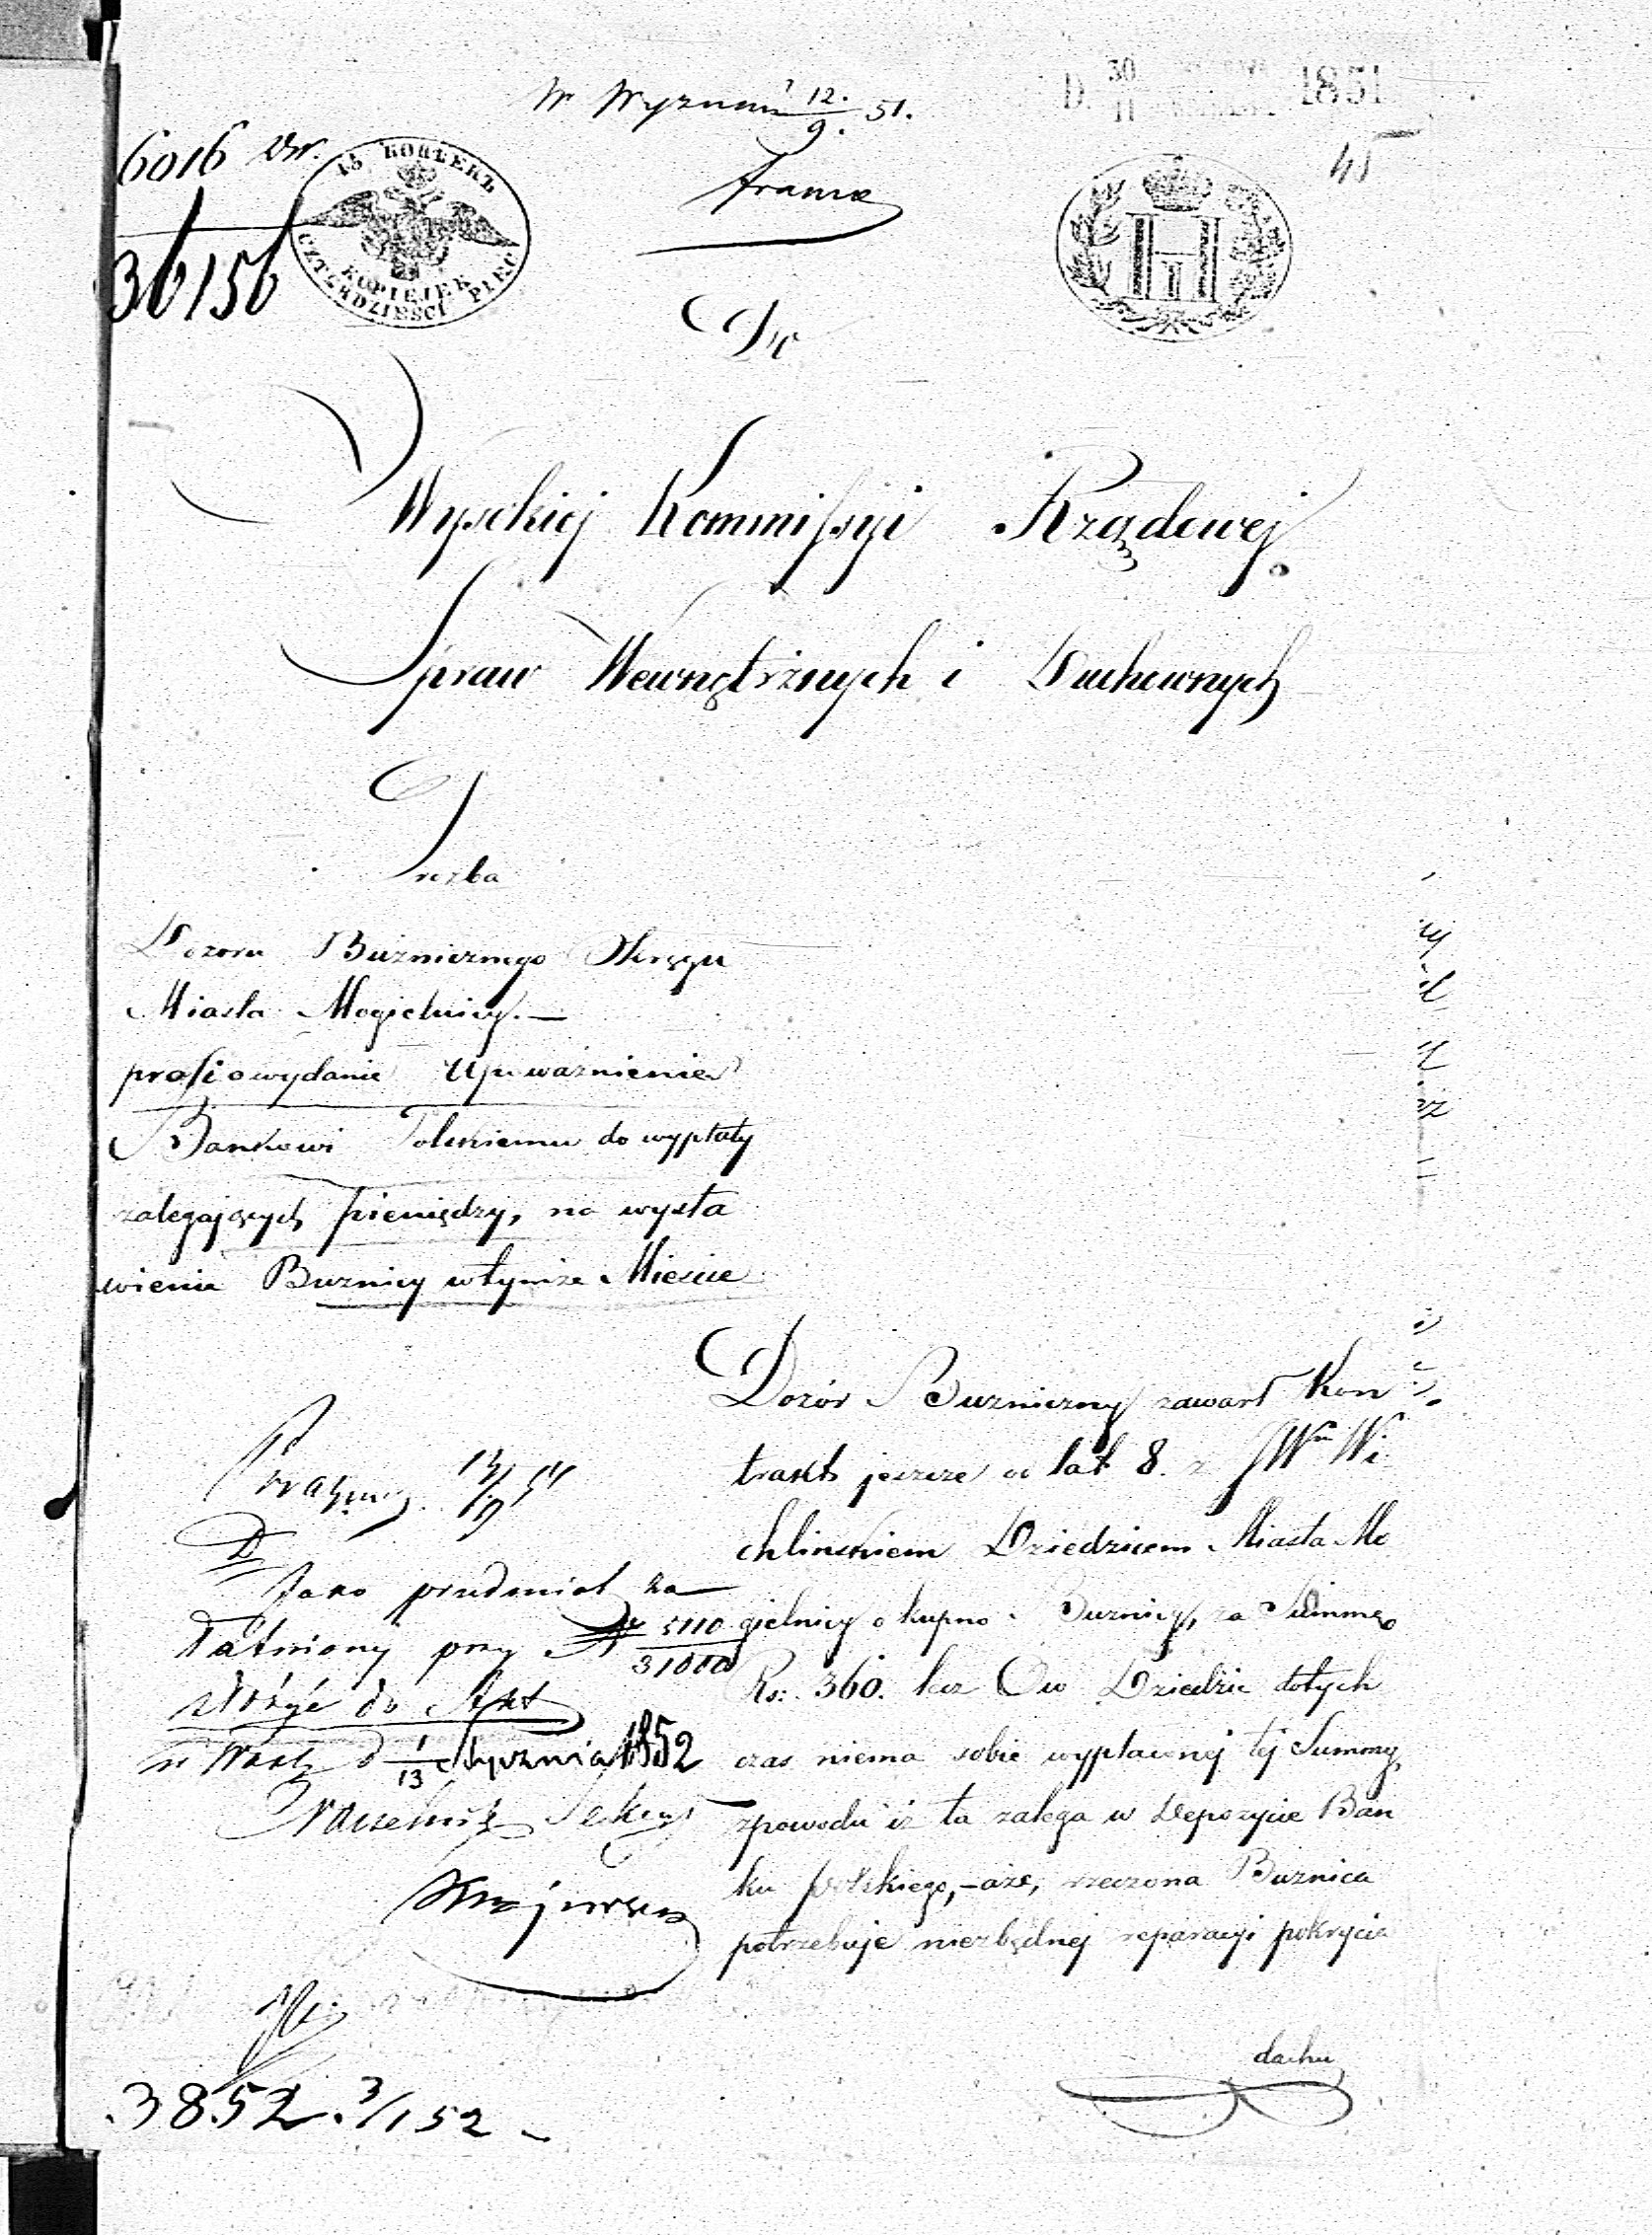 W Wyznań 12./9. 51.
D. 30/11 1851
45
6016
36156
15 КОПѢЕКЪ
CZTERDZIEŚCI PIĘĆ
KOPIEJEK
Do
Wysokiej Kommissyi Rządowej
Spraw Wewnętrznych i Duchownych
Prożba
Dozoru Bużnicznego Okręgu
Miasta Mogielnicy.—
prosi o wydanie Upoważnienia
Bankowi Polskiemu do wypłaty
zalegających pieniędzy, na wysta
wienie Buznicy w tymże Mieście
Dozór Buzniczny zawarł Kon
trakt jeszcze od lat 8. z JWm Wi
chlinskiem Dziedzicem Miasta Mo
gielnicy o kupno Buznicy, za Summę
Rs: 360. lecz Ów Dziedzic dotych
czas niema sobie wypłaconej tej Summy,
zpowodu iż ta zalega w Depozycie Ban
ku polskiego,—aże, rzeczona Buznica
potrzebuje niezbędnej reparacyi pokrycia
dachu
Jako przedmiot za
łatwiony przy N 5110/31000
złożyć do Akt
w Warsz d 1/13 Stycznia 1852
Naczelnik Sekcyi
3852. 3/1 52